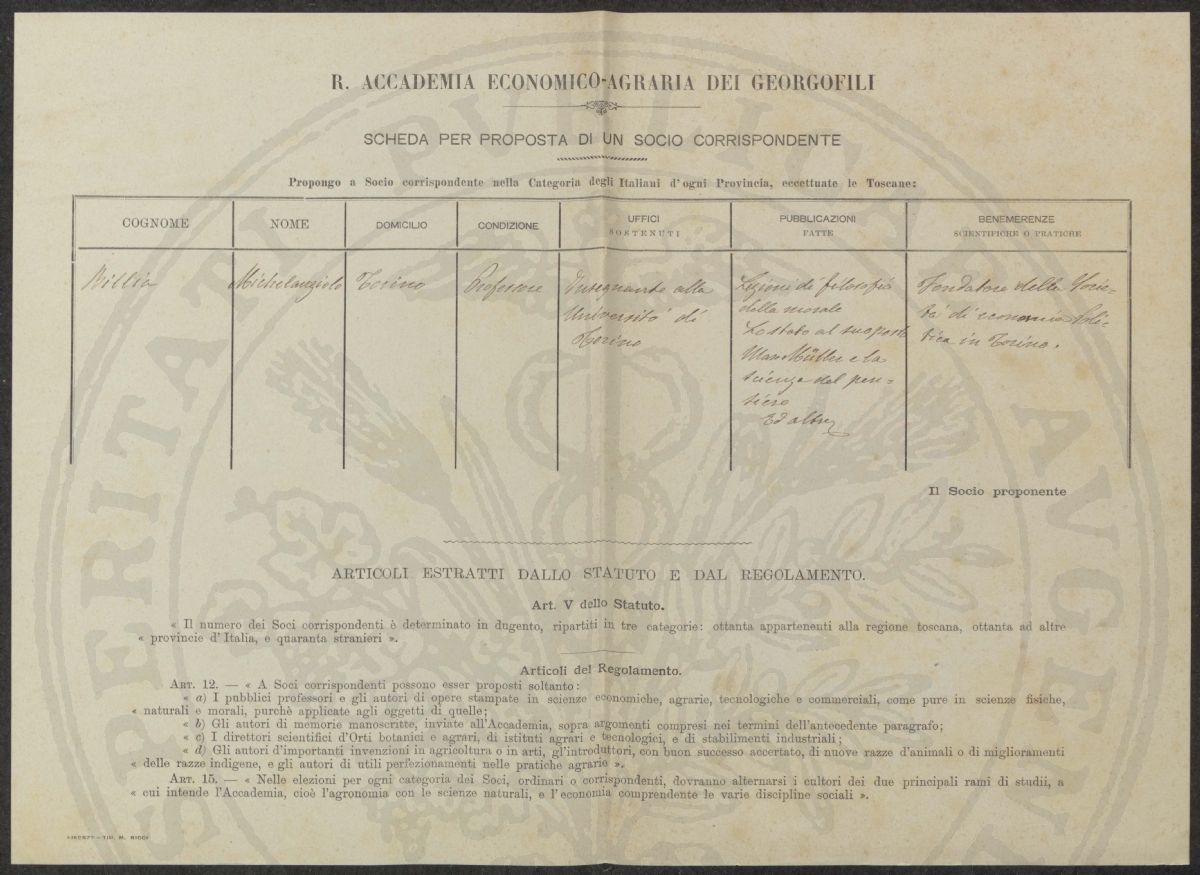 R. ACCADEMIA ECONOMICO-AGRARIA DEI GEORGOFILI
SCHEDA PER PROPOSTA DI UN SOCIO CORRISPONDENTE
Propongo a Socio corrispondente nella Categoria degli Italiani d'ogni Provincia, eccettuate le Toscane:
COGNOME
NOME
DOMICILIO
CONDIZIONE
UFFICI
SOSTENUTI
PUBBLICAZIONI
FATTE
BENEMERENZE
SCIENTIFICHE O PRATICHE
Billia
Michelangiolo
Torino
Professore
Insegnante alla
Università di
Torino
Lezioni di filosofia
della morale
Lo stato al
Max Müller e la
scienza del pen-
siero
Ed altre
Fondatore della Socie-
tà di economia Poli-
tica in Torino.
Il Socio proponente
ARTICOLI ESTRATTI DALLO STATUTO E DAL REGOLAMENTO.
Art. V dello Statuto.
« Il numero dei Soci corrispondenti è determinato in dugento, ripartiti in tre categorie: ottanta appartenenti alla regione toscana, ottanta ad altre
« provincie d'Italia, e quaranta stranieri ».
Articoli del Regolamento.
ART. 12. — « A Soci corrispondenti possono esser proposti soltanto:
« a) I pubblici professori e gli autori di opere stampate in scienze economiche, agrarie, tecnologiche e commerciali, come pure in scienze fisiche,
« naturali e morali, purchè applicate agli oggetti di quelle;
« b) Gli autori di memorie manoscritte, inviate all'Accademia, sopra argomenti compresi nei termini dell'antecedente paragrafo;
« c) I direttori scientifici d'Orti botanici e agrari, di istituti agrari e tecnologici, e di stabilimenti industriali;
« d) Gli autori d'importanti invenzioni in agricoltura o in arti, gl'introduttori, con buon successo accertato, di nuove razze d'animali o di miglioramenti
« delle razze indigene, e gli autori di utili perfezionamenti nelle pratiche agrarie ».
ART. 15. — « Nelle elezioni per ogni categoria dei Soci, ordinari o corrispondenti, dovranno alternarsi i cultori dei due principali rami di studii, a
« cui intende l'Accademia, cioè l'agronomia con le scienze naturali, e l'economia comprendente le varie discipline sociali ».
FIRENZE - TIP. M. RICCI